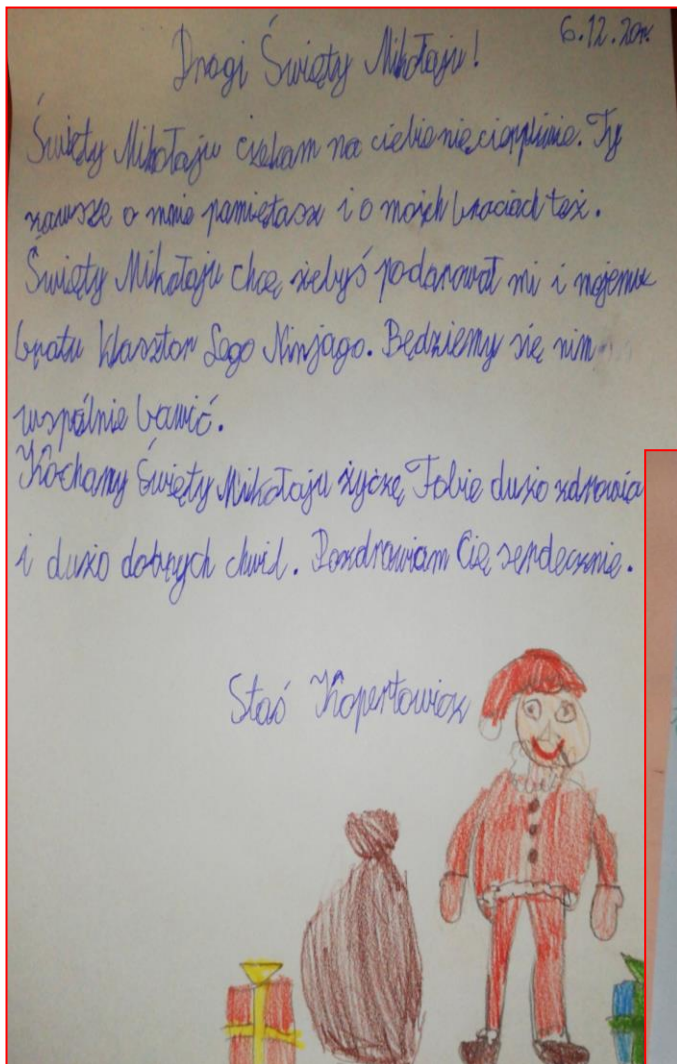 6.12.20r.
Drogi Święty Mikołaju!
Święty Mikołaju czekam na ciebie niecierpliwie. Ty
zawsze o mnie pamiętasz i o moich braciach też.
Święty Mikołaju chcę żebyś podarował mi i mojemu
bratu klasztor Lego Ninjago. Będziemy się nim
wspólnie bawić.
Kochany Święty Mikołaju życzę Tobie dużo zdrowia
i dużo dobrych chwil. Pozdrawiam Cię serdecznie.
Staś Kopertowicz